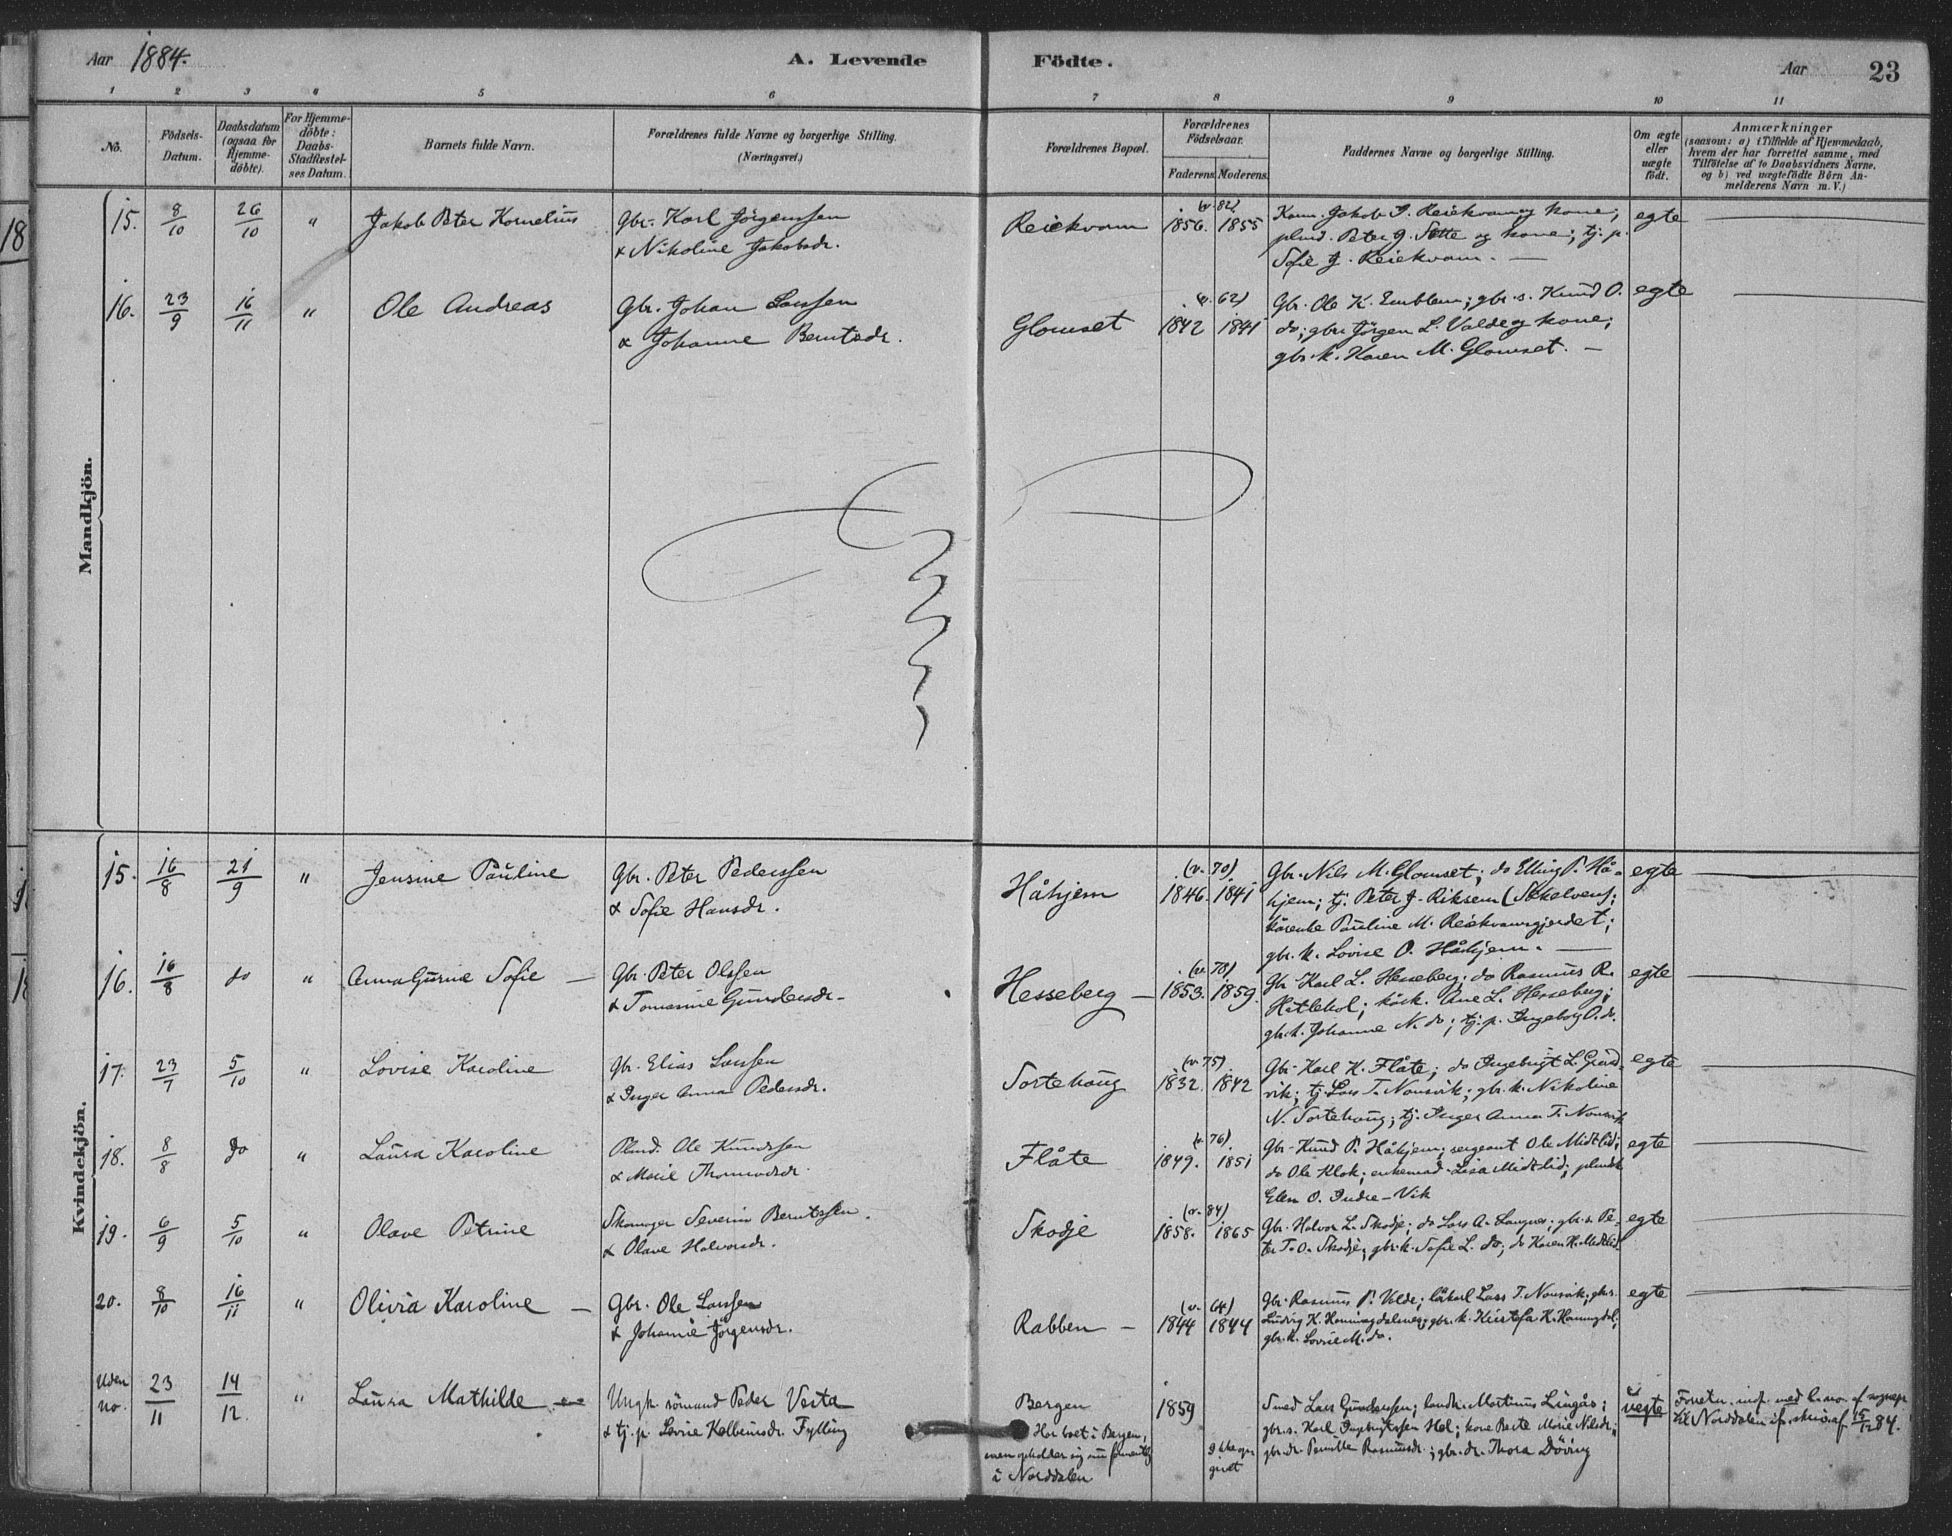 Aar 1884.
A. Levende Födte.
Aar 23
1 2 3 4 5 6 7 8 9 10 11
No.
Födsels-
Datum.
Daabsdatum
(ogsaa for
Hjemme-
döbte).
For Hjemme-
döbte:
Daabs-
Stadfæstel-
ses Datum.
Barnets fulde Navn.
Forældrenes fulde Navne og borgerlige Stilling.
(Næringsvei.)
Forældrenes Bopæl.
Forældrenes
Födselsaar.
Faderens. Moderens.
Faddernes Navne og borgerlige Stilling.
Om ægte
eller
uægte
födt.
Anmærkninger
(saasom: a) i Tilfælde af Hjemmedaab,
hvem der har forrettet samme, med
Tilföielse af to Daabsvidners Navne.
og b) ved uægtefödte Börn An-
melderens Navn m. V.)
18
Mandkjön.
15. 8/10 26/10 " Jakob Peter Kornelius
Gbr. Karl Jörgenssen
& Nikoline Jakobsdr.
Reiekvam
(v. 82)
1856. 1855
Kam. Jakob J. Reiekvam og kone;
plmd. Peter J. Sætte og kone; tj. p.
Sofie J. Reiekvam. —
egte
16. 23/9 16/11 " Ole Andreas
Gbr. Johan Larssen
& Johanne Berntsdr.
Glomset
(v. 62)
1842 1841
Gbr. Ole K. Emblem; gbr. s. Knud O.
do; gbr. Jörgen L. Valde og kone;
gbr. k. Karen M. Glomset. —
egte
Kvindekjön.
15. 16/8 21/9 " Jensine Pauline
Gbr. Peter Pederssen
& Sofie Hansdr.
Håhjem
(v. 70)
1846. 1841
Gbr. Nils M. Glomset; do Elling P. Hå-
hjem; tj. Peter J. Riksem
Pauline M. Reiekvamsgjerdet;
gbr. k. Lovise O. Håhjem. —
egte
16. 16/8 do " Anna Gurine Sofie —
Gbr. Peter Olssen
& Tomasine Gundersdr. —
Hesseberg —
(v. 78)
1853. 1859.
Gbr. Karl L. Hesseberg; do Rasmus R.
Ane L. Hesseberg;
gbr. k. Johanne N. do; tj. p. Ingeborg O. do.
egte
17. 23/7 5/10 " Lovise Karoline
Gbr. Elias Larssen
& Inger Anna Pedersdr.
Sortehoug
(v. 75)
1832. 1842
Gbr. Karl K. Flåte; do Ingebrigt L. Grød-
vik; tj. Lars T. Nonsvik; gbr. k. Nikoline
N. Sortehoug; tj. Inger Anna T. Nonsvik
egte
18. 8/8 do " Laura Karoline
Plmd. Ole Knudssen
& Marie Thomasdr.
Flåte
(v. 76)
1849. 1851
Gbr. Knud P. Håhjem; sergeant Ole Midtlid;
do Ole Klok; enkemad. Lisa Midtlid; plmdsk.
Elen O. Indre-Vik
egte
19. 6/9 5/10 " Olave Petrine
Skomager Severin Berntssen.
& Olave Halvorsdr.
Skodje
(v. 84)
1858. 1865
Gbr. Halvor L. Skodje; do Lars A. Langnes; gbr. s. Pe-
ter T. O. Skodje; gbr. k. Sofie L. do; do Karen H. Midtlid
egte
20. 8/10 16/11 " Olivia Karoline —
Gbr. Ole Larssen
& Johanne Jörgensdr.
Rabben —
(v. 64)
1844 1844
Gbr. Rasmus P. Valde; Lars T. Nonsvik; gbr. s.
Ludvig K. gbr. k. Kirstofa K.
gbr. k. Lovise M. do.
egte
Uden
no. 23/11 14/12 " Laura Mathilde —
Ungk. sömand Peder Vesta
& tj. p. Lovise Kolbeinsdr. Fylling
Bergen
Har boet i Bergen,
men opholder sig nu
i Norddalen
1859
Ikke op-
givet
Smed Lars Gunderssen; Martinus Lingås;
gbr. s. Karl Ingebrigtssen Hol; kone Berte Marie Nilsdr.;
gbr. dr. Pernille Rasmusdr.; gbr. dr. Thora Döving
uegte
til Norddalen if. skriv. af 15/12 84.